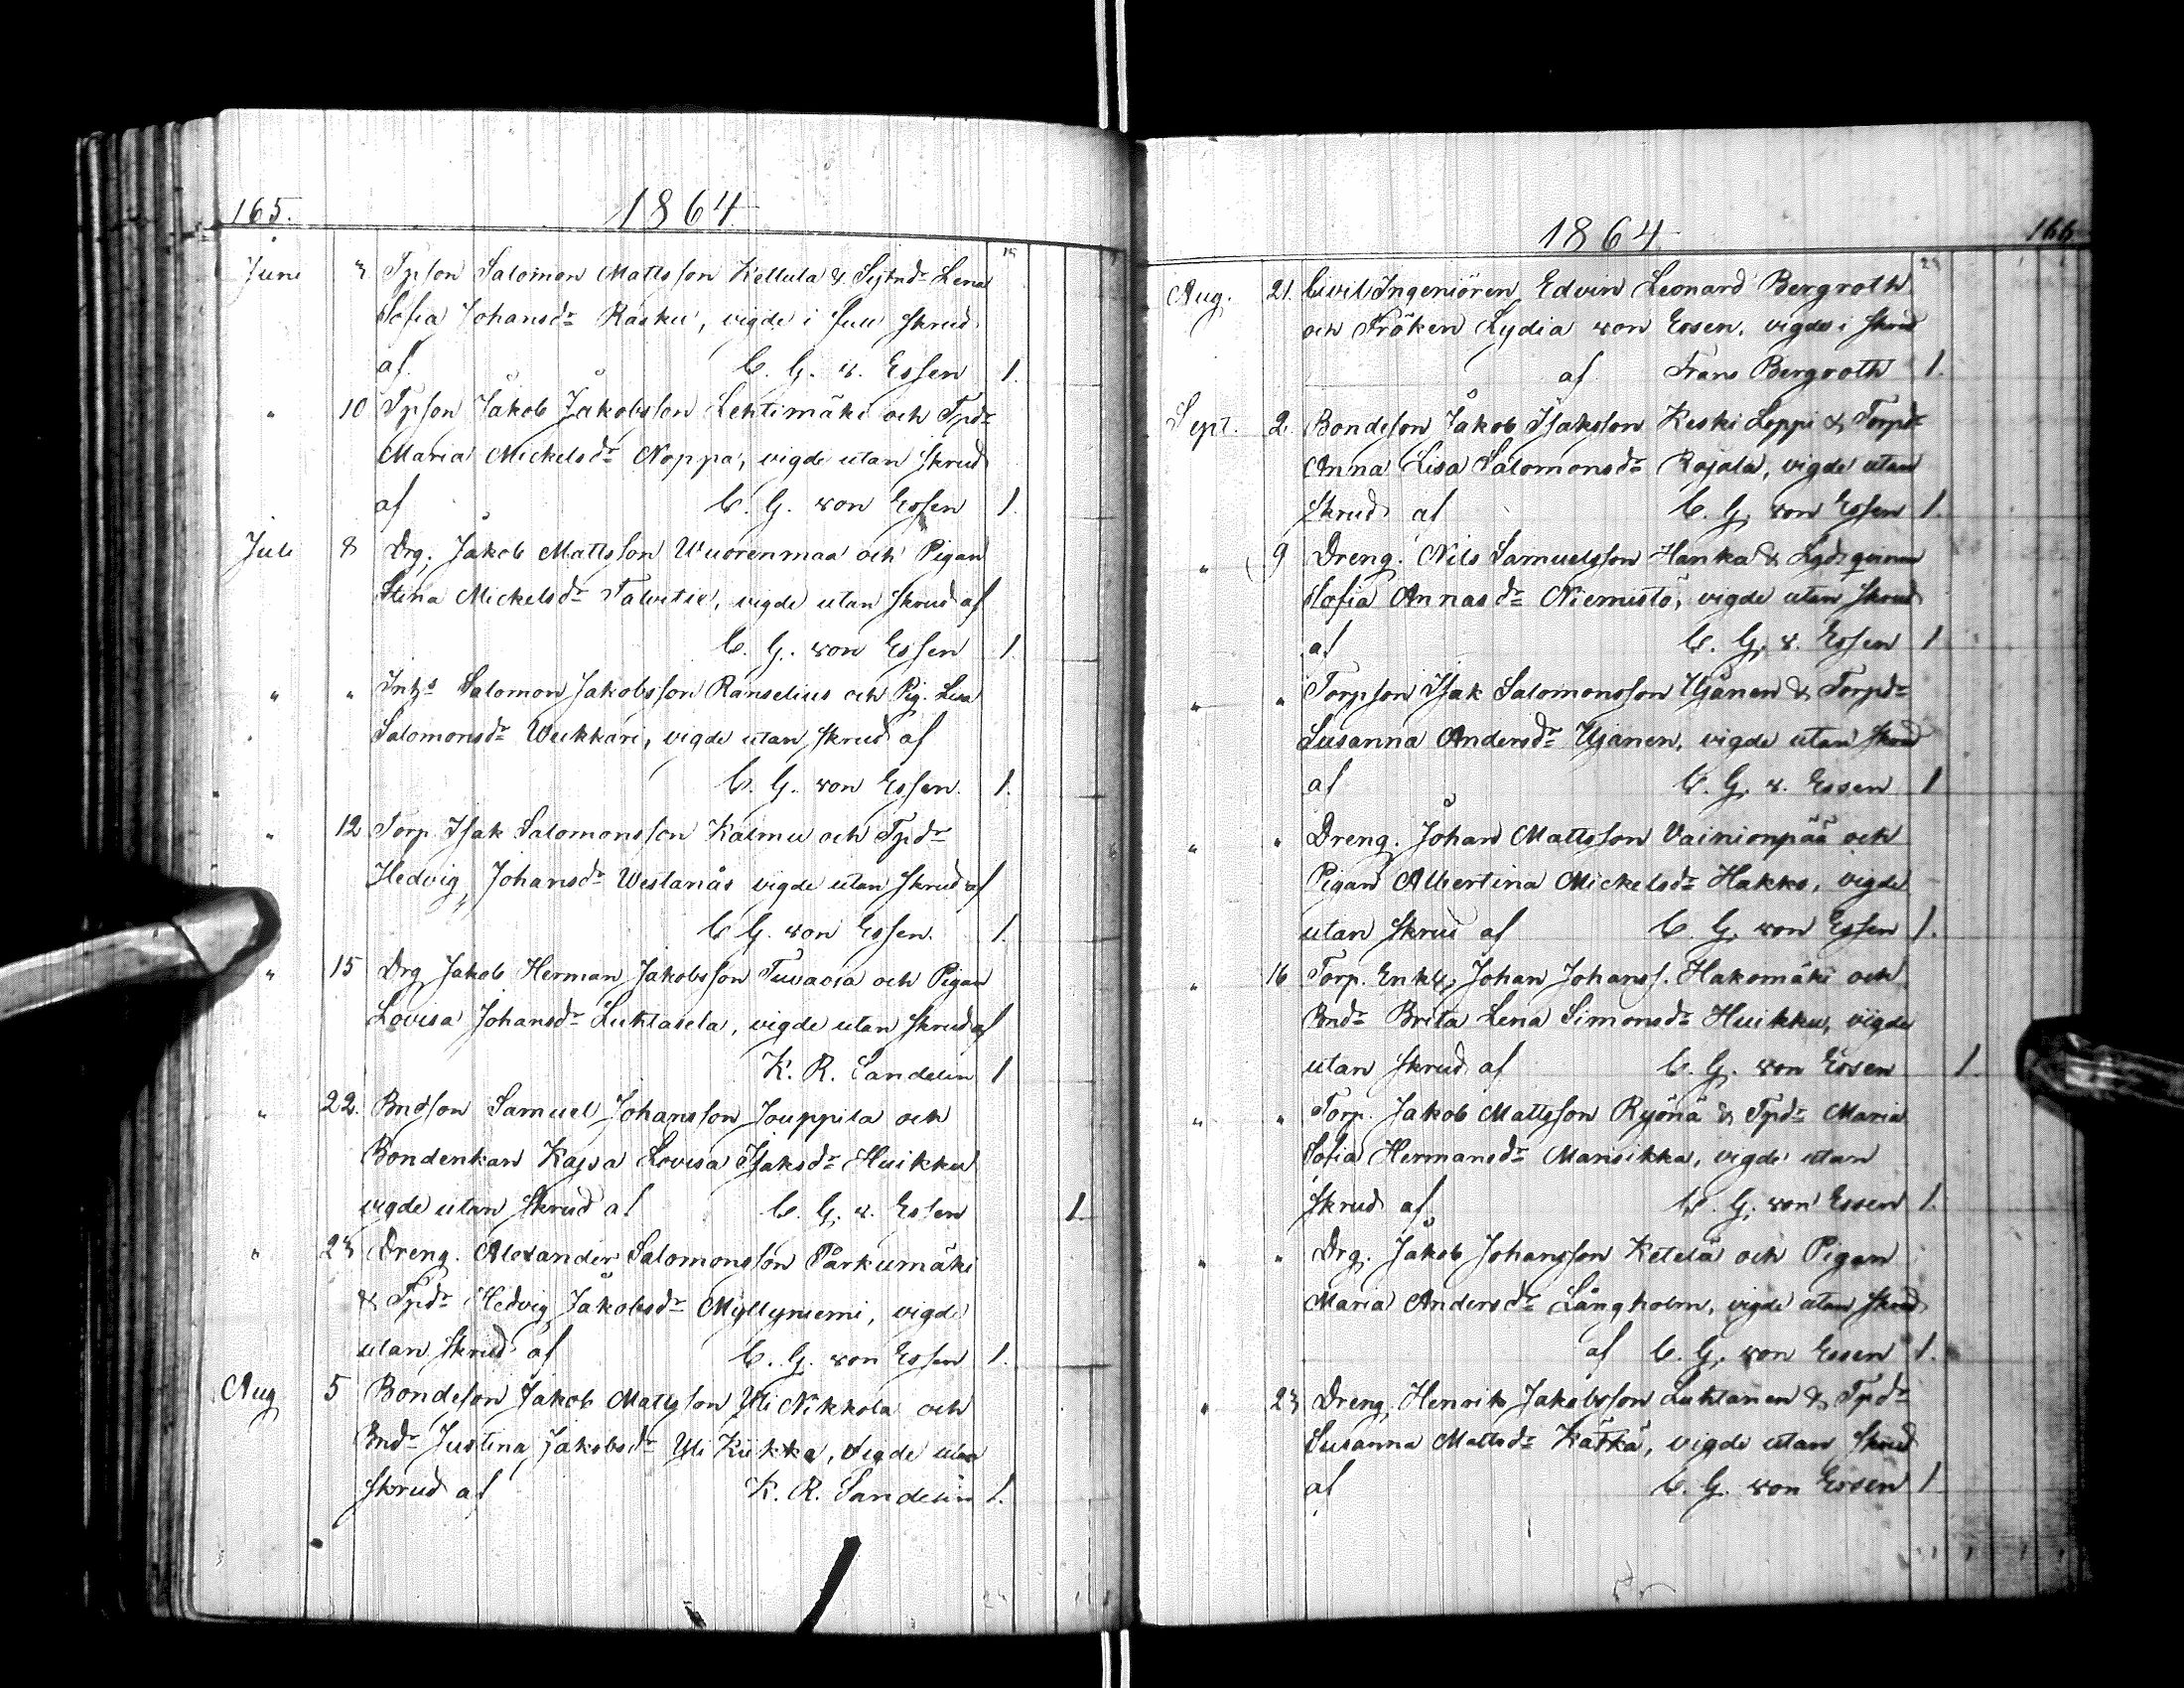 165. 1864
Juni 3 Tpson Salomon Mattsson Kellula & Sytndr Lena
Sofia Johansdr Rasku, vigde i full skrud
af C. G. v. Essen 1.
" 10 Tpson Jakob Jakobsson Lehtimäki och Tpdr
Maria Mickelsdr Noppa, vigde utan skrud
af C. G. von Essen 1.
Juli 8 Drg. Jakob Mattsson Wuorenmaa och Pigan
Stina Mickelsdr Talvitie, vigde utan skrud af
C. G. von Essen 1.
" " Inhs Salomon Jakobsson Ranselius och Pig. Lisa
Salomonsdr Weikkari, vigde utan skrud af
C. G. von Essen. 1.
" 12 Torp. Isak Salomonsson Kalmu och Tpdr
Hedvig Johansdr Westanås vigde utan skrud af
C G. von Essen. 1.
" 15 Drg Jakob Herman Jakobsson Tuvaosa och Pigan
Lovisa Johansdr Luhtasela, vigde utan skrud af
K. R. Sandelin 1
" 22. Bndson Samuel Johansson Jouppila och
Bondenkan Kajsa Lovisa Isaksdr Huikku
vigde utan skrud af C. G. v. Essen 1.
" 23 Dreng. Alexander Salomonsson Pärkumäki
& Tpdr Hedvig Jakobsdr Myllyniemi, vigde
utan skrud af C. G. von Essen 1.
Aug 5 Bondeson Jakob Mattsson Yli Nikkola och
Bndr Justina Jakobsdr Yli Kiikka, vigde utan
skrud af K. R. Sandelin 1.
1864 166
Aug. 21. Civil Ingeniören Edvin Leonard Bergroth
och Fröken Lydia von Essen, vigde i skrud
af Frans Bergroth 1.
Sept. 2. Bondeson Jakob Isaksson Keski Loppi & Torpdr
Anna Lisa Salomonsdr Rajala, vigde utan
skrud af C. G. von Essen 1.
" 9 Dreng. Nils Samuelsson Hanka & Lgdsqvinnan
Sofia Annasdr Niemistö, vigde utan skrud
af C. G. v. Essen 1
" " Torpson Isak Salomonsson Ujanen & Torpdr
Susanna Andersdr Ujanen, vigde utan skrud
af C. G. v. Essen 1
" " Dreng. Johan Mattsson Vainionpää och
Pigan Albertina Mickelsdr Hakko, vigde
utan skrud af C. G. von Essen 1.
" 16 Torp. Enkl. Johan Johanss. Hakomäki och
Bndr Brita Lena Simonsdr Huikku, vigde
utan skrud af C. G. von Essen 1.
" " Torp. Jakob Mattsson Ryönä & Tpdr Maria
Sofia Hermansdr Mansikka, vigde utan
skrud af C. G. von Essen 1.
" " Drg. Jakob Johansson Ketelä och Pigan
Maria Andersdr Långholm, vigde utan skrud
af C. G. von Essen 1.
" 23 Dreng. Henrik Jakobsson Luhtanen & Tpdr
Susanna Mattsdr Kätkä, vigde utan skrud
af C. G. von Essen 1